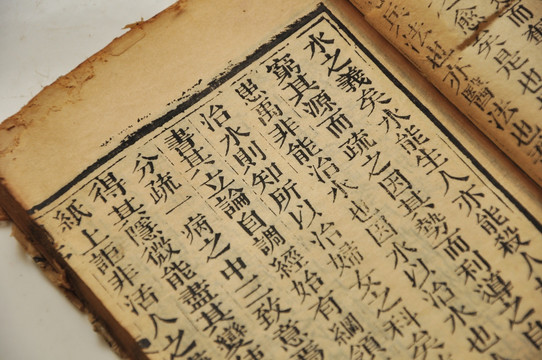 愈矣是也
兵法也亦醫法也
水之義矣水能生人亦能殺人
窮其源而疏之因其勢而利導之
患禹非能治水也因水以治水也
治水則知所以治婦女之科矣
書其立論自調經始有綱領
分疏一病之中三致意焉
得其隱微能盡其變
紙上詎非活人之